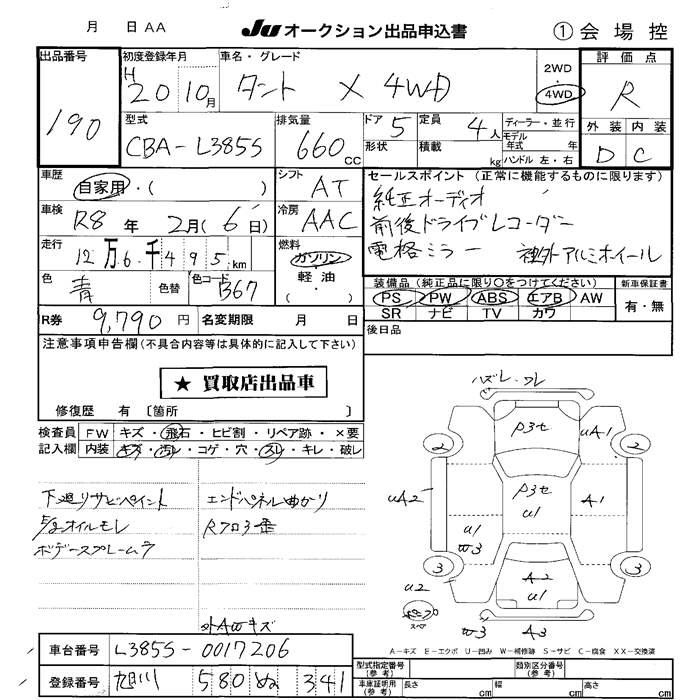 月 日 AA JU オークション出品申込書 ① 会場控
出品番号 初度登録年月 車名・グレード 2WD・4WD 評価点
190 H 20 10月 タント X 4WD R
型式 排気量 ドア 定員 ディーラー・並行 外装 内装
CBA-L385S 660cc 5 4人 モデル年式 年 D C
形状 積載 kg ハンドル 左・右
車歴 シフト セールスポイント (正常に機能するものに限ります)
自家用・( ) AT 純正オーディオ
車検 冷房 前後ドライブレコーダー
R8年 2月(6日) AAC 電格ミラー 社外アルミホイール
走行 燃料
12万6千495km ガソリン・軽油・( )
色 色替 色コード 装備品 (純正品に限り○をつけてください) 新車保証書
青 B67 PS PW ABS エアB AW 有・無
SR ナビ TV カワ
R券 9,790円 名変期限 月 日 後日品
注意事項申告欄(不具合内容等は具体的に記入して下さい)
★ 買取店出品車
修復歴 有 〔箇所 〕
検査員 FW キズ・飛石・ヒビ割・リペア跡・×要
記入欄 内装 キズ・汚レ・コゲ・穴・スレ・キレ・破レ
下廻りサビペイント エンドパネル曲がり
オイルモレ Rフロア歪
外AWキズ
ハズレ・ワレ
P3セ UA1
2 2
P3セ U1
UA2 A1
U1 W3
3 3
A2 U1
U2
スペア
W3 A3
A-キズ E-エクボ U-凹み W-補修跡 S-サビ C-腐食 XX-交換済
車台番号 L385S-0017206 型式指定番号(参考) 類別区分番号(参考)
登録番号 旭川 580 ぬ 341 車庫証明用(参考) 長さ cm 幅 cm 高さ cm